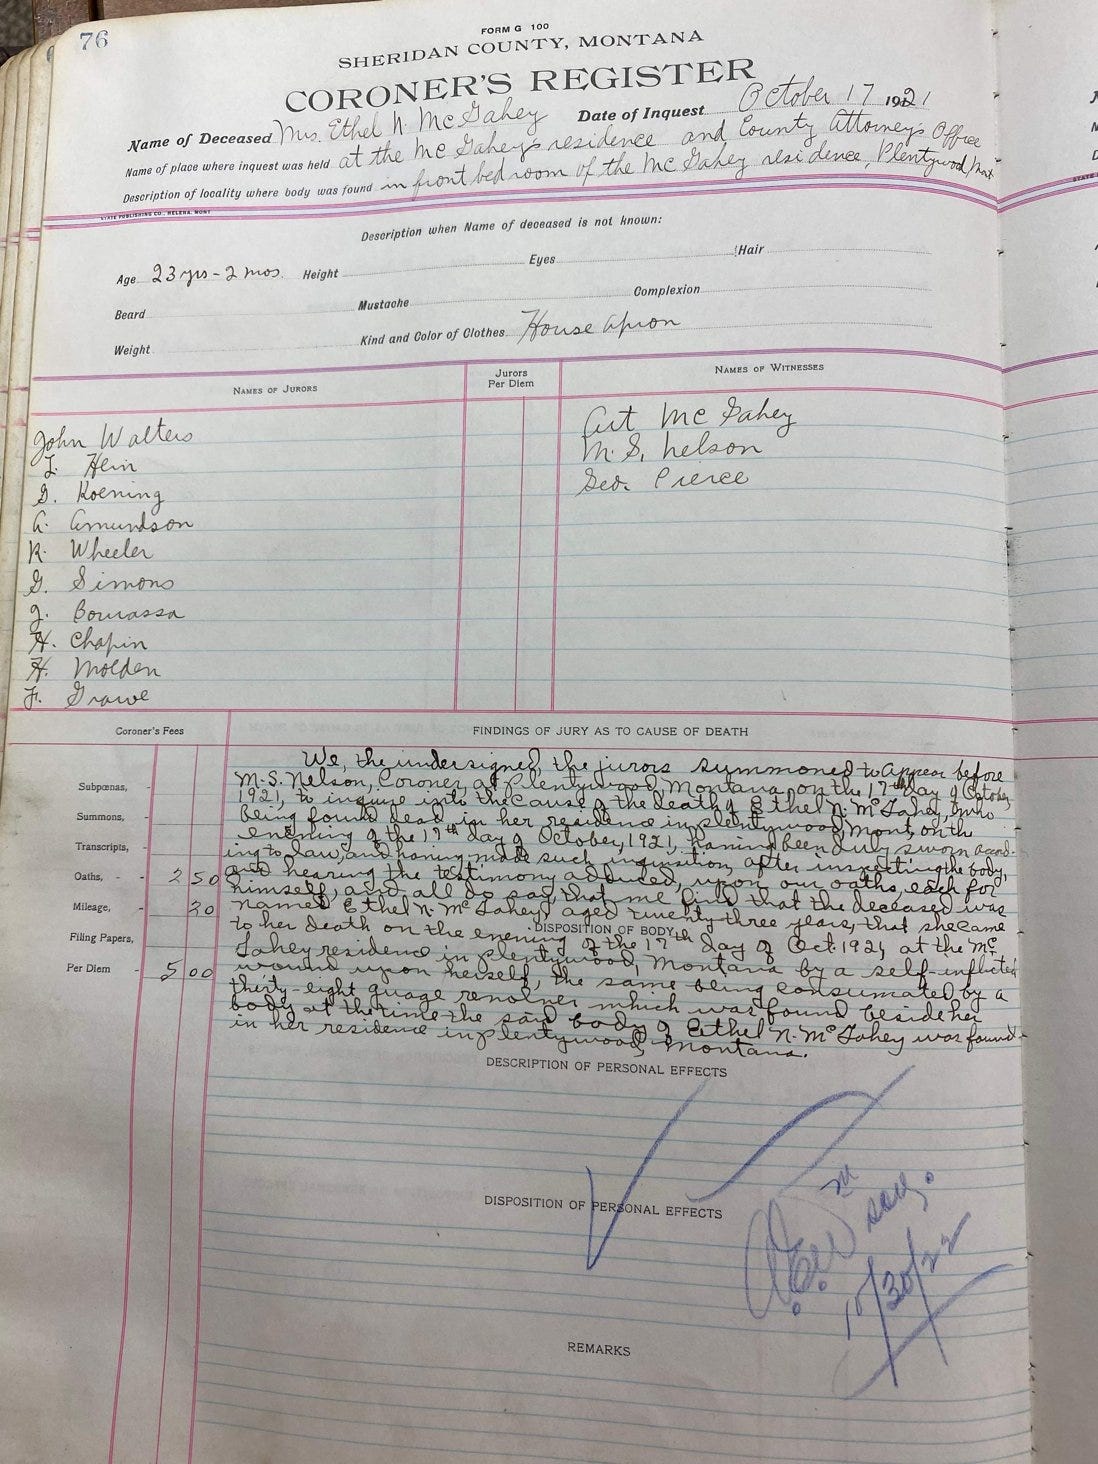 76
FORM G 100
SHERIDAN COUNTY, MONTANA
CORONER'S REGISTER
Name of Deceased Mrs. Ethel N. McGahey Date of Inquest October 17 1921
Name of place where inquest was held at the McGahey's residence and County Attorney's Office
Description of locality where body was found in front bed room of the McGahey residence, Plentywood, Mont
STATE PUBLISHING CO., HELENA, MONT
Description when Name of deceased is not known:
Age 23 yrs - 2 mos. Height Eyes Hair
Beard Mustache Complexion
Weight Kind and Color of Clothes House apron
NAMES OF JURORS
Jurors Per Diem
NAMES OF WITNESSES
John Walters
Hein
G. Koening
A. Amundson
R. Wheeler
G. Simons
J. Bourassa
H. Chapin
H. Molden
F. Grawe
Art McGahey
M. S. Nelson
Geo. Pierce
Coroner's Fees
FINDINGS OF JURY AS TO CAUSE OF DEATH
We, the undersigned, the jurors summoned to appear before
M. S. Nelson, Coroner, at Plentywood, Montana, on the 17th day of October,
1921, to inquire into the cause of the death of Ethel N. McGahey, who
being found dead, in her residence in plentywood, Mont, on the
evening of the 17th day of October, 1921, having been duly sworn accord-
ing to law, and having made such inquisition, after inspecting the body,
and hearing the testimony adduced, upon our oaths, each for
himself, and all do say, that we find that the deceased was
named Ethel N. McGahey, aged twenty three years, that she came
to her death on the evening of the 17th day of Oct. 1921, at the Mc
DISPOSITION OF BODY
Gahey residence in plentywood, Montana by a self-inflicted
wound upon herself, the same being consumated by a
thirty-eight guage revolver which was found beside her
body at the time the said body of Ethel N. McGahey was found
in her residence in plentywood, Montana.
Subpœnas, -
Summons, -
Transcripts, -
Oaths, - - 2 50
Mileage, - 20
Filing Papers,
Per Diem - 5 00
DESCRIPTION OF PERSONAL EFFECTS
DISPOSITION OF PERSONAL EFFECTS
10/30/22
REMARKS